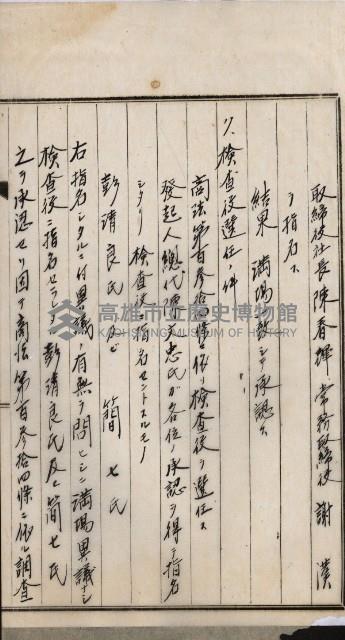 取締役社長 陳春輝 常務取締役 謝 溪
ヲ指名ス
結果 満場一致ヲ以テ承認ス
リ、検査役選任ノ件
商法第百参拾四條ニ依リ検査役ヲ選任ス
發起人總代 忠氏が各位ノ承認ヲ得テ指名
シタリ 検査役ニ指名セントスルモノ
彭靖良氏及ビ 簡七氏
右指名シタルニ付異議ノ有無ヲ問ヒシニ満場異議ナシ
検査役ニ指名セラレ 彭靖良氏及ビ簡七氏
之ヲ承認セリ因テ商法第百参拾四條ニ依ル調査
高雄市立歷史博物館
KAOHSIUNG MUSEUM OF HISTORY